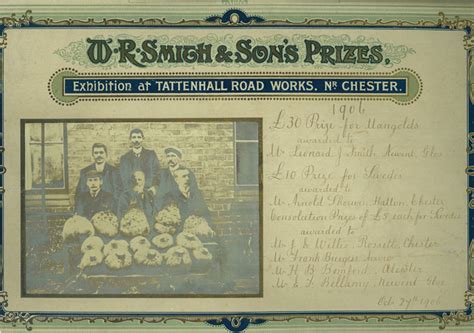 W. R. Smith & Son's Prizes,
Exhibition at TATTENHALL ROAD WORKS. NR CHESTER.
1906
£30 Prize for Mangolds
awarded to
Mr Leonard J Smith, Newent, Glos
£10 Prize for Swedes
awarded to
Mr Arnold Hatton, Chester
Consolation Prizes of £3 each for Swedes
awarded to
Mr J. E. Willis Rossett, Chester
Mr Frank
Mr H B Bomford, Alcester
Mr Bellamy, Newent Glos
Oct 29th 1906